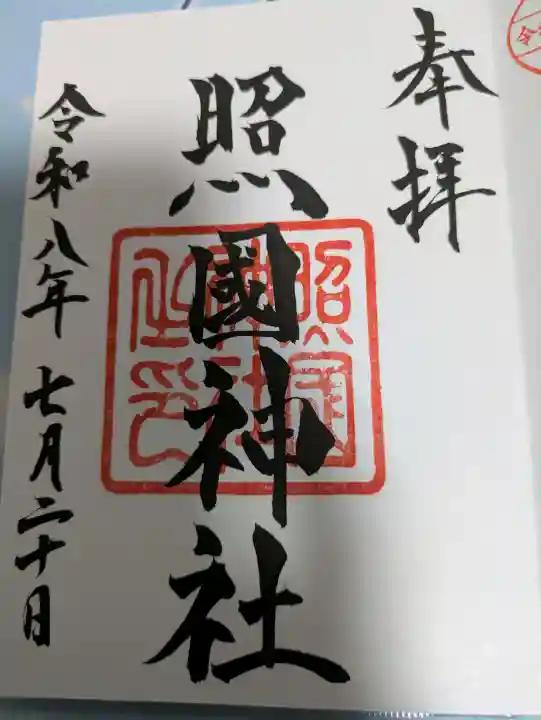 奉拝
照國神社
照国神社之印
令和八年 七月二十日